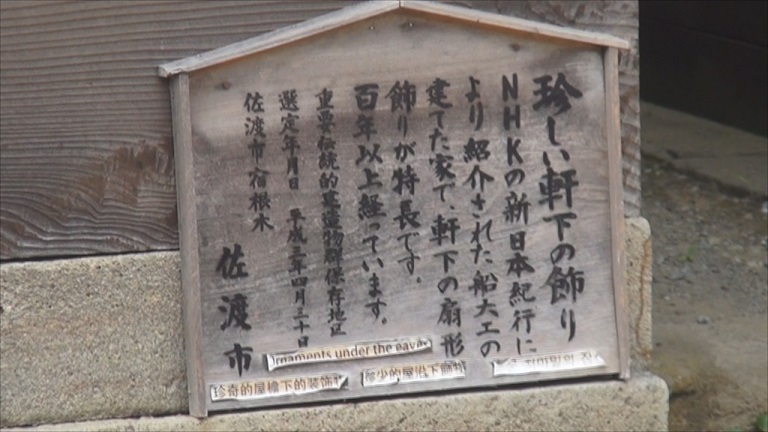 珍しい軒下の飾り
NHKの新日本紀行に
より紹介された船大工の
建てた家で、軒下の扇形
飾りが特長です。
百年以上経っています。
重要伝統的建造物群保存地区
選定年月日 平成三年四月三十日
佐渡市宿根木
佐渡市
rnaments under the eaves
珍奇的屋檐下的装饰
的屋沿下飾